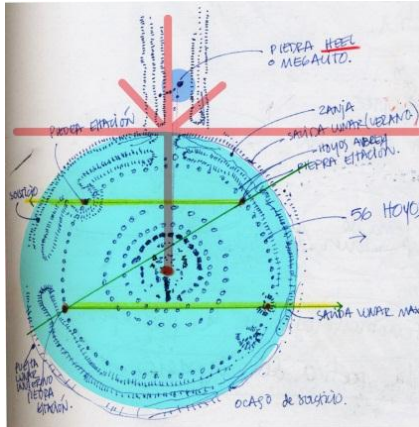 PIEDRA HEEL
O MEGALITO.
PIEDRA ESTACIÓN
ZANJA
SALIDA LUNAR (VERANO)
HOYOS AUBREY
PIEDRA ESTACIÓN.
SOLSTICIO
56 HOYOS
SALIDA LUNAR MAX
PUESTA
LUNAR
INVIERNO
PIEDRA
ESTACIÓN.
OCASO de SOLSTICIO.